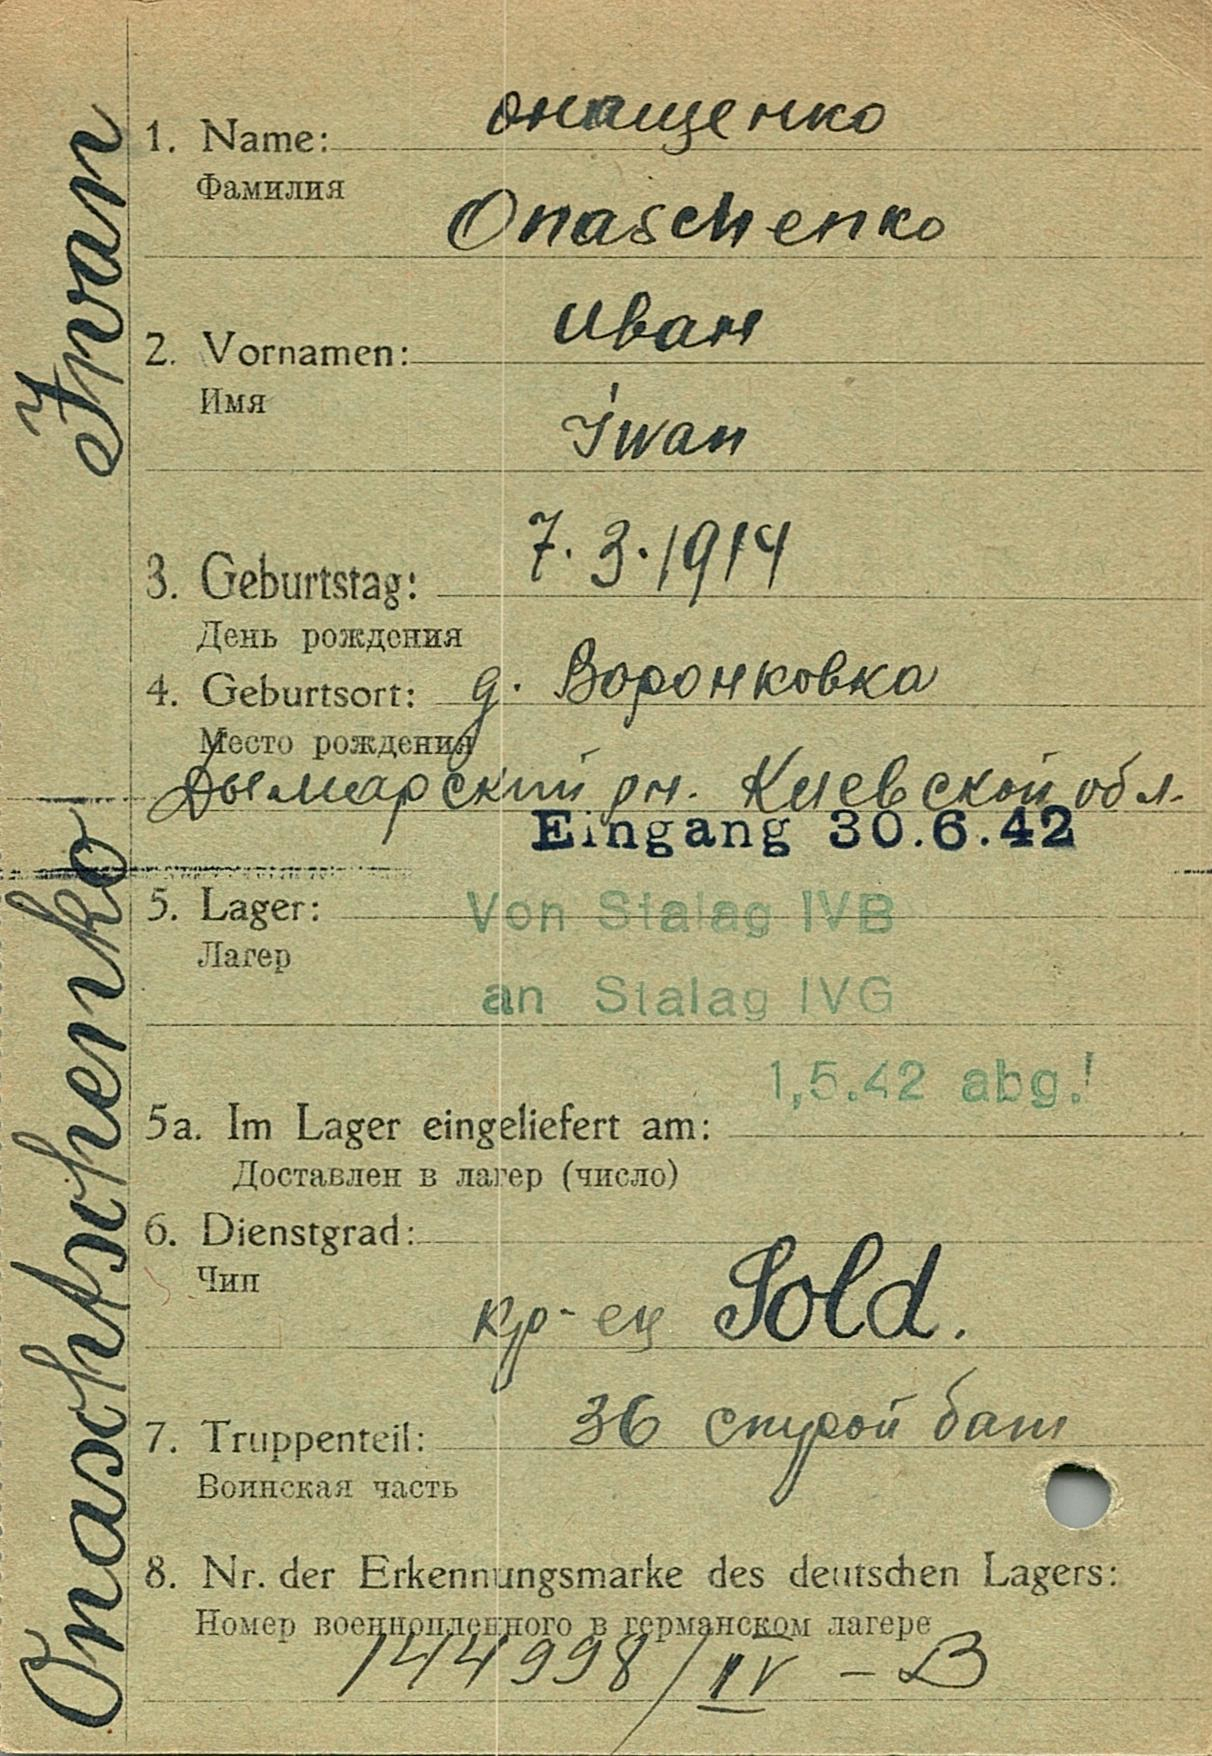 Onaschtschenko Iwan
1. Name: Онащенко
Фамилия
Onaschenko
2. Vornamen: Иван
Имя
Iwan
3. Geburtstag: 7.3.1914
День рождения
4. Geburtsort: д. Воронковка
Место рождения
Дымарский рн. Киевской обл.
Eingang 30.6.42
5. Lager: Von Stalag IVB
Лагер
an Stalag IVG
1,5.42 abg.!
5a. Im Lager eingeliefert am:
Доставлен в лагер (число)
6. Dienstgrad:
Чин
кр-ец Sold.
7. Truppenteil: 36 строй бат
Воинская часть
8. Nr. der Erkennungsmarke des deutschen Lagers:
Номер военнопленного в германском лагере
144998/IV - B